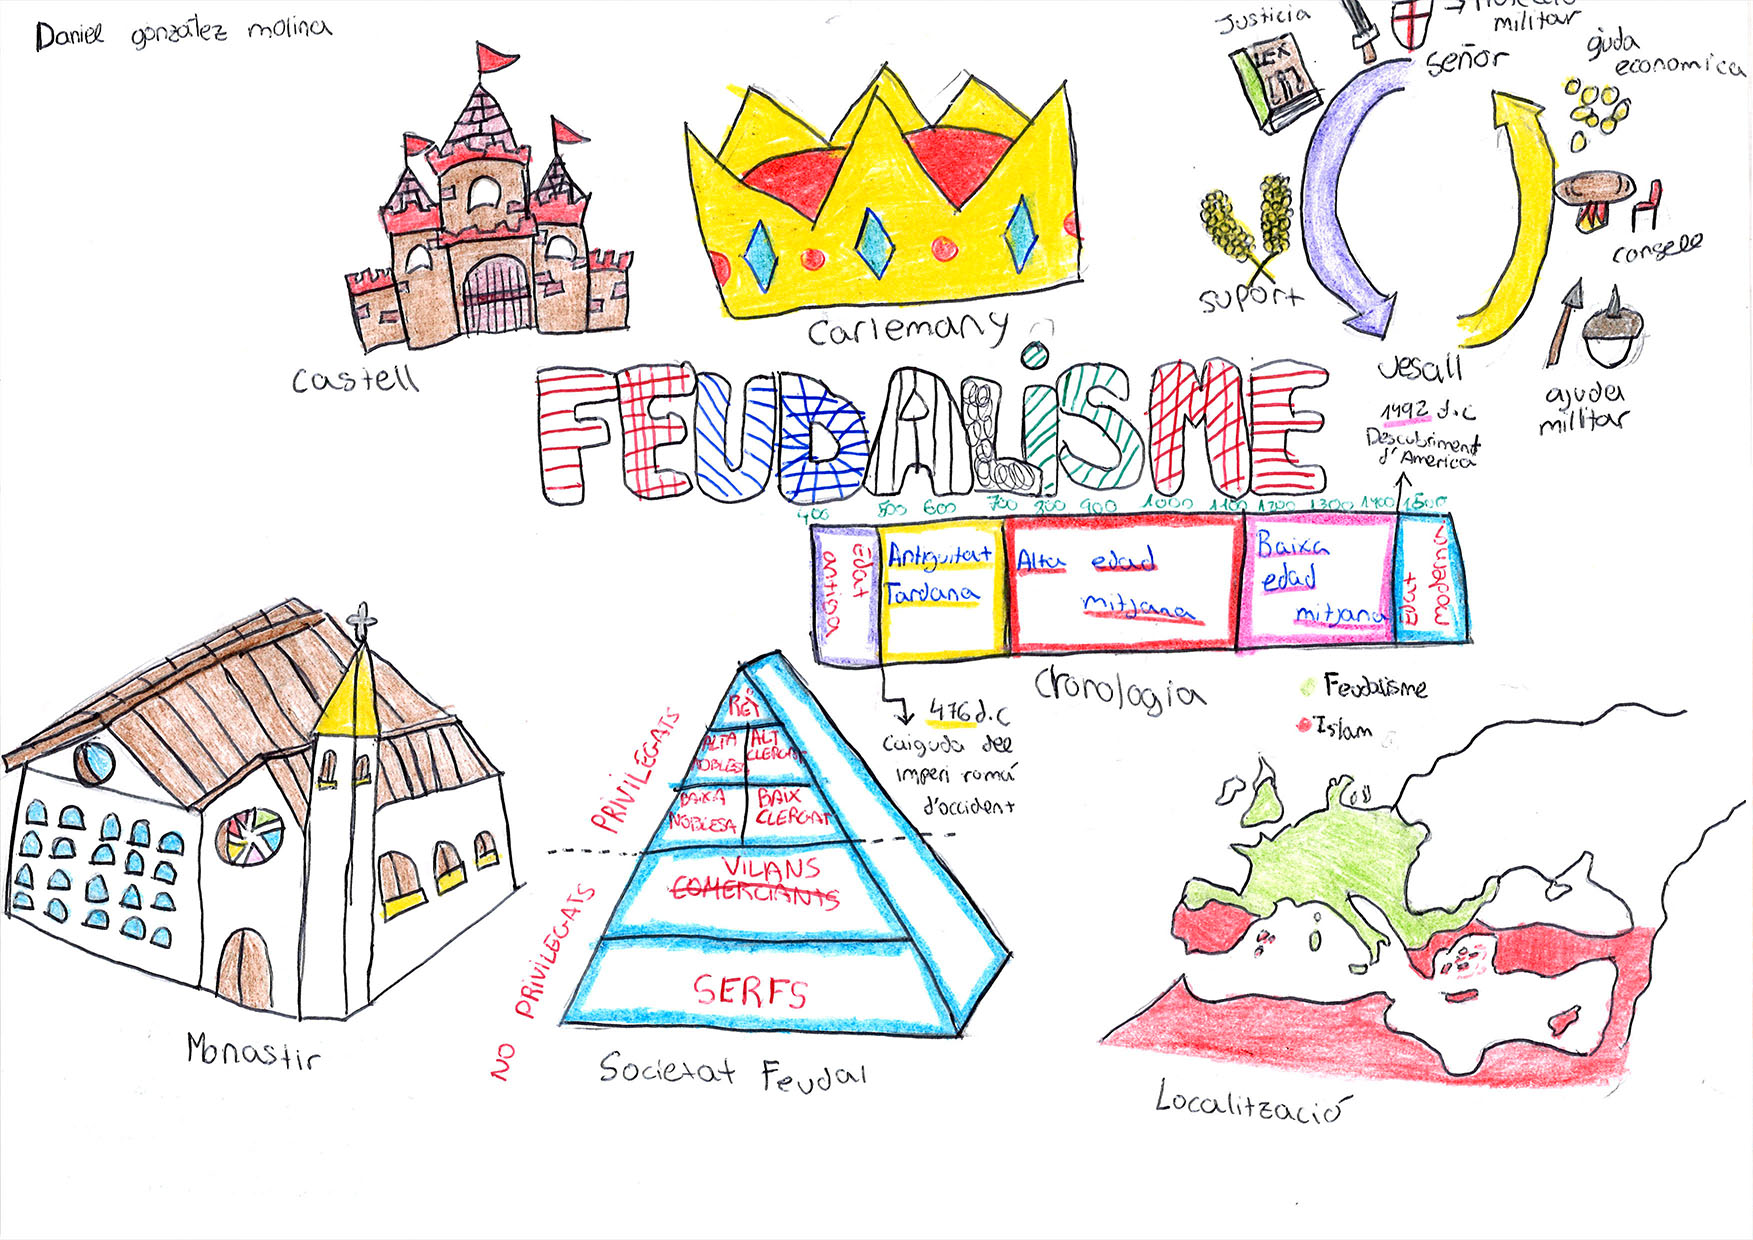 Daniel gonzález molina
Justicia
militar
señor
ajuda
economica
LEX
suport
consell
vesall
ajuda
militar
castell
carlemany
FEUDALISME
1492 d.c
Descubriment
d'America
400 500 600 700 800 900 1000 1100 1200 1300 1400 1500
Edat
antiga
Antiguitat
Tardana
Alta edad
mitjana
Baixa
edad
mitjana
Edat
moderna
Cronologia
476 d.c
Caiguda del
imperi romá
d'occident
Feudalisme
Islam
Localització
Monastir
PRIVILEGATS
NO PRIVILEGATS
REI
ALTA
NOBLESA
ALT
CLERGAT
BAIXA
NOBLESA
BAIX
CLERGAT
VILANS
COMERCIANTS
SERFS
Societat Feudal